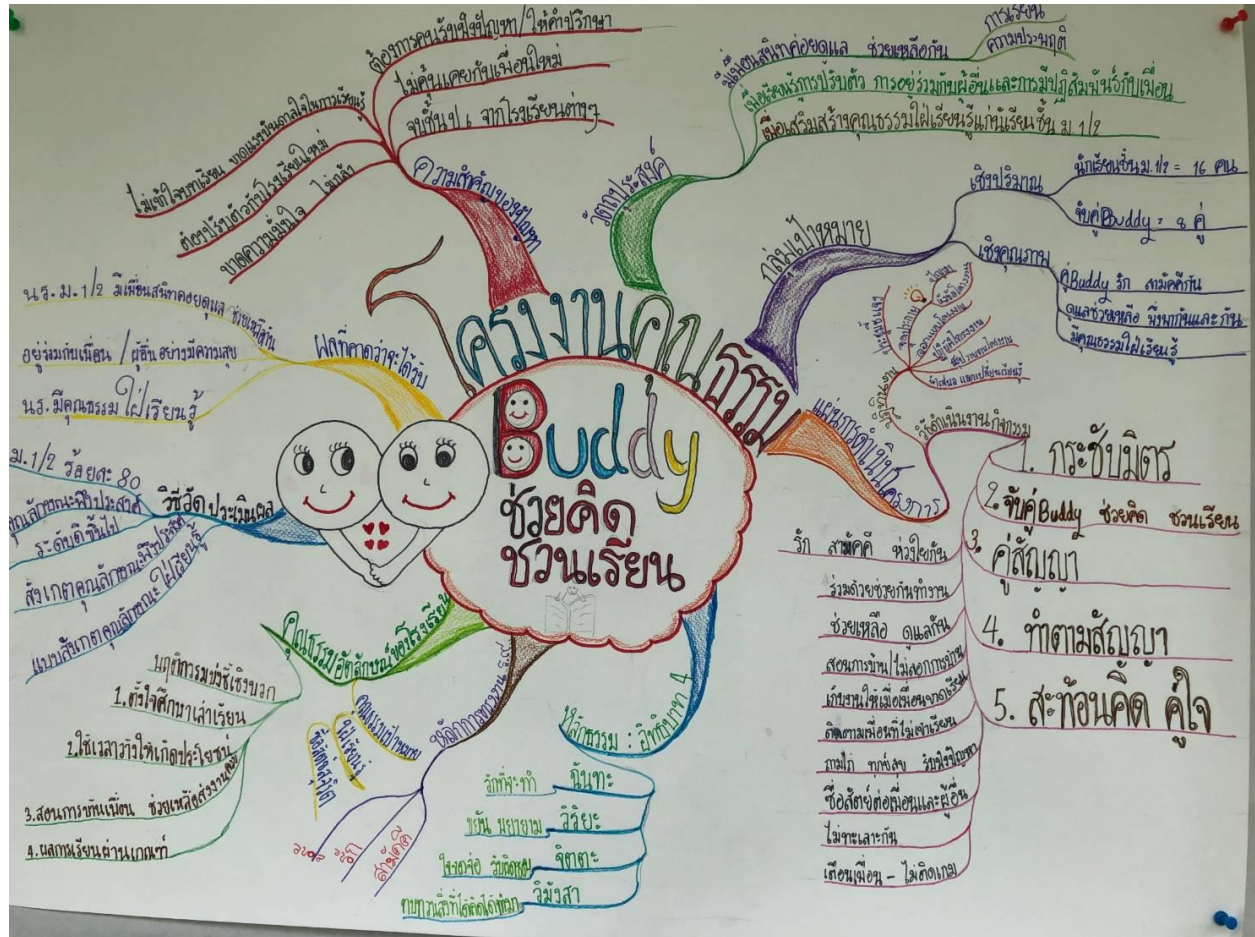 โครงงานคุณธรรม
Buddy
ช่วยคิด
ชวนเรียน
ความสำคัญของปัญหา
ต้องการคนรับฟังปัญหา/ให้คำปรึกษา
ไม่คุ้นเคยกับเพื่อนใหม่
จบชั้น ป.6 จากโรงเรียนต่างๆ
ไม่เข้าใจบทเรียน ขาดแรงบันดาลใจในการเรียนรู้
ต้องปรับตัวกับโรงเรียนใหม่
ขาดความมั่นใจ ไม่กล้า
วัตถุประสงค์
มีเพื่อนสนิทค่อยดูแล ช่วยเหลือกัน
การเรียน
ความประพฤติ
เพื่อเรียนรู้การปรับตัว การอยู่ร่วมกับผู้อื่นและการมีปฏิสัมพันธ์กับเพื่อน
เพื่อเสริมสร้างคุณธรรมใฝ่เรียนรู้แก่นักเรียนชั้น ม.1/2
กลุ่มเป้าหมาย
เชิงปริมาณ
นักเรียนชั้นม.1/2 = 16 คน
จับคู่Buddy = 8 คู่
เชิงคุณภาพ
คู่Buddy รัก สามัคคีกัน
ดูแลช่วยเหลือ พึ่งพากันและกัน
มีคุณธรรมใฝ่เรียนรู้
แผนการดำเนินโครงการ
ประชุมชี้แจง
ปัญหา
นำเสนอ แลกเปลี่ยนเรียนรู้
วิธีดำเนินงานกิจกรรม
1. กระชับมิตร
2. จับคู่Buddy ช่วยคิด ชวนเรียน
3. คู่สัญญา
4. ทำตามสัญญา
5. สะท้อนคิด คู่ใจ
รัก สามัคคี ห่วงใยกัน
ร่วมด้วยช่วยกันทำงาน
ช่วยเหลือ ดูแลกัน
สอนการบ้าน/ไม่ลอกการบ้าน
เก็บงานให้เมื่อเพื่อนขาดเรียน
ติดตามเพื่อนที่ไม่เข้าเรียน
ถามไถ่ ทุกข์สุข รับฟังปัญหา
ซื่อสัตย์ต่อเพื่อนและผู้อื่น
ไม่ทะเลาะกัน
เตือนเพื่อน - ไม่ติดเกม
หลักธรรม : อิทธิบาท 4
ฉันทะ
รักที่จะทำ
วิริยะ
ขยัน พยายาม
จิตตะ
ใจจดจ่อ รับผิดชอบ
วิมังสา
ทบทวนสิ่งที่ได้คิดได้ทำมา
หลักการทรงงาน ร.9
รู้ รัก สามัคคี
คุณธรรมอัตลักษณ์ของโรงเรียน
คุณธรรมเป้าหมาย
ใฝ่เรียนรู้
ซื่อสัตย์สุจริต
พฤติกรรมบ่งชี้เชิงบวก
1.ตั้งใจศึกษาเล่าเรียน
2.ใช้เวลาว่างให้เกิดประโยชน์
3.สอนการบ้านเพื่อน ช่วยเหลือส่งงานครู
4.ผลการเรียนผ่านเกณฑ์
วิธีวัดประเมินผล
ม.1/2 ร้อยละ 80
คุณลักษณะพึงประสงค์
ระดับดีขึ้นไป
สังเกตคุณลักษณะพึงประสงค์
แบบสังเกตคุณลักษณะใฝ่เรียนรู้
ผลที่คาดว่าจะได้รับ
นร. ม.1/2 มีเพื่อนสนิทคอยดูแล ช่วยเหลือกัน
อยู่ร่วมกับเพื่อน / ผู้อื่นอย่างมีความสุข
นร. มีคุณธรรม ใฝ่เรียนรู้